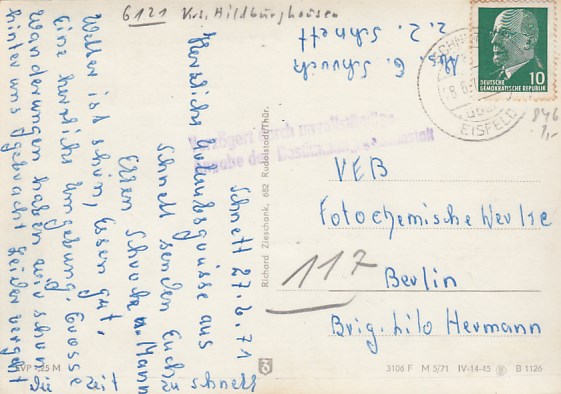 6121 Krs. Hildburghausen
Abs. E. Schuch
z. Z. Schnett
Schnett 27.6.71
Herzliche Urlaubsgrüsse aus
Schnett senden Euch
Ellen Schuch u. Mann
Wetter ist schön, Essen gut,
eine herrliche Umgebung. Grosse
Wanderungen haben wir schon
hinter uns gebracht. Leider vergeht
die Zeit zu schnell
EVP 0,25 M
Richard Zieschank, 682 Rudolstadt/Thür.
DEUTSCHE
DEMOKRATISCHE REPUBLIK
10
EISFELD
846
1,-
Verzögert durch unvollständige
Angabe der
VEB
Fotochemische Werke
117 Berlin
Brig. Lilo Hermann
3106 F M 5/71 IV-14-45 B 1126